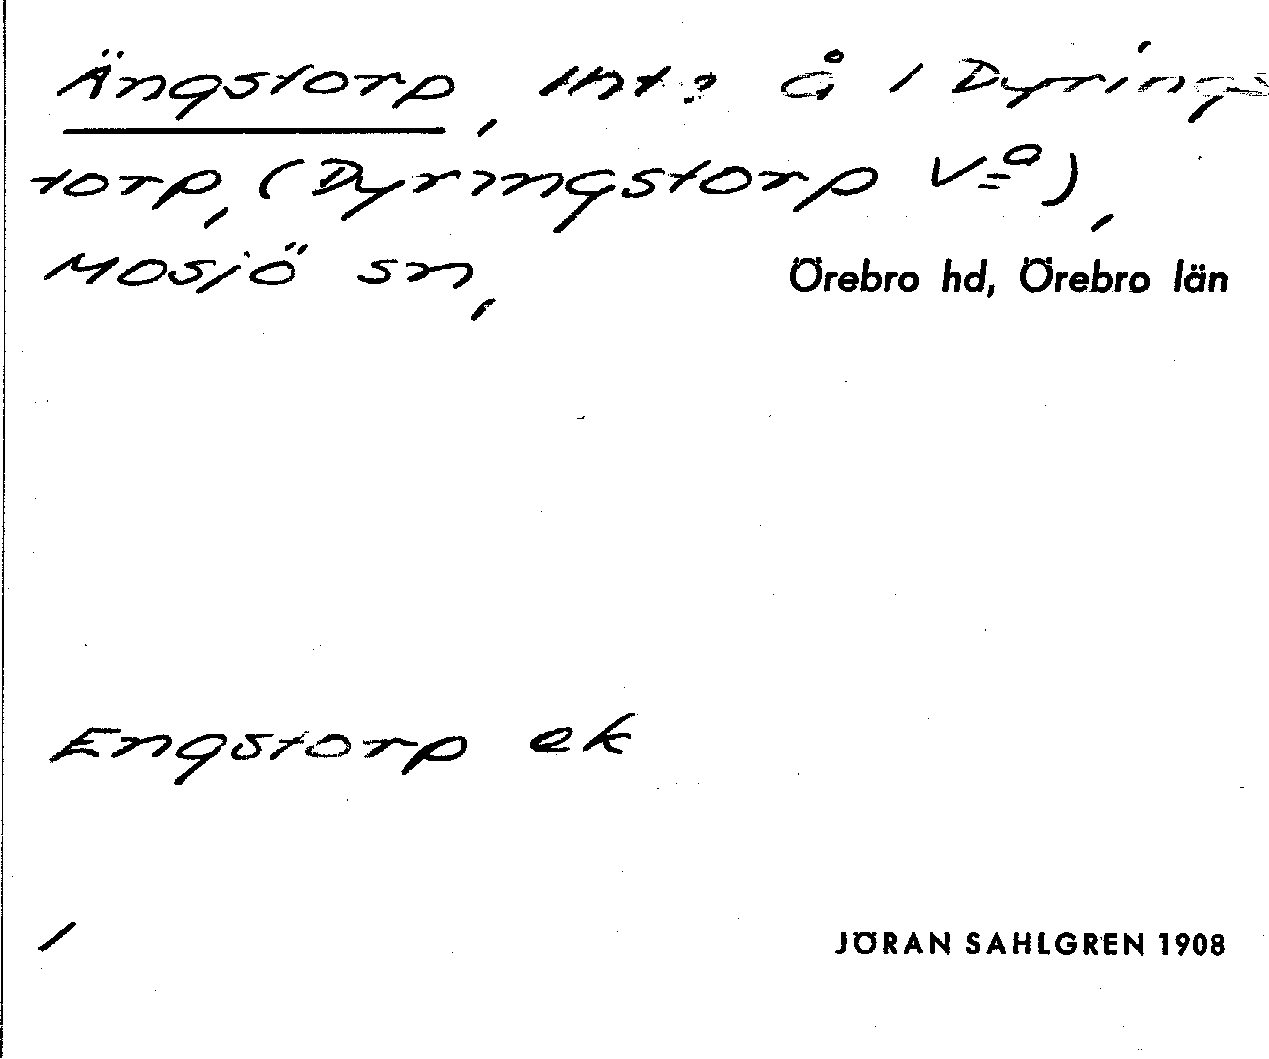 Ängstorp, lht? å 1 Dyrings
torp, (Dyringstorp Vᵃ),
Mosjö sn, Örebro hd, Örebro län
Engstorp ek
/ JÖRAN SAHLGREN 1908